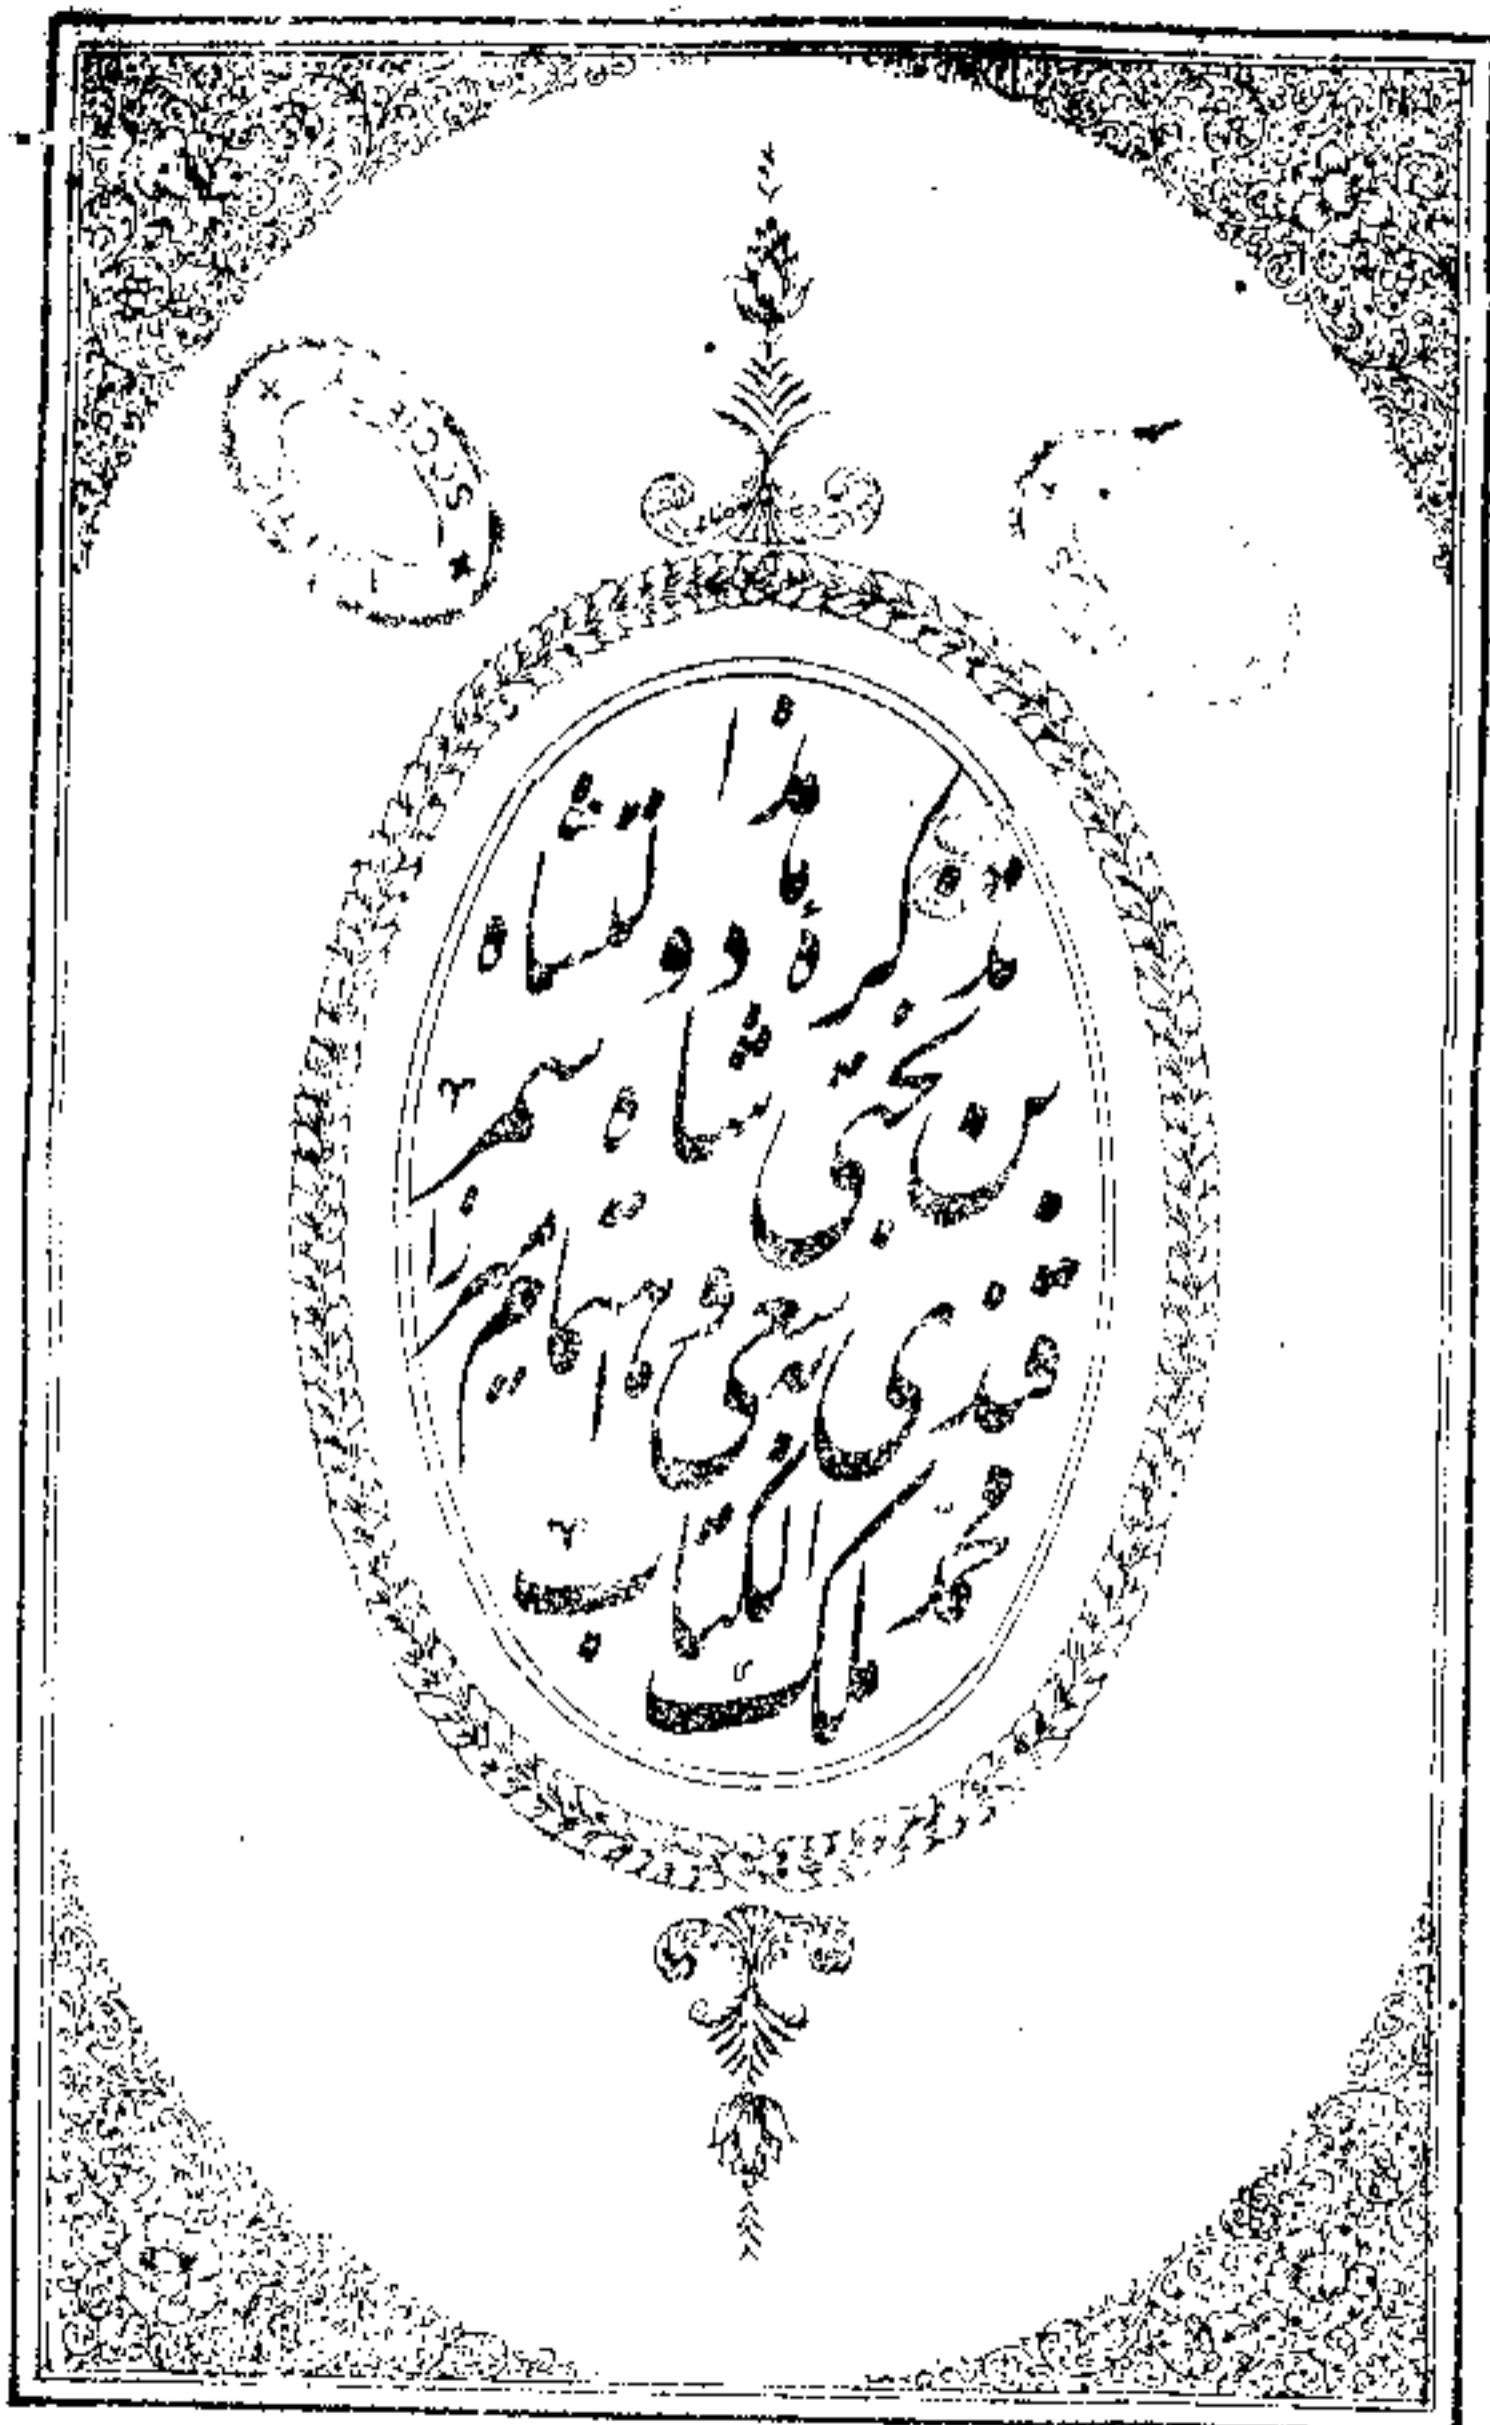 هذا
تذکرة دولتشاه
بن بختی شاه سمر
قندی بسعی و اهتمام میرزا
محمد ملک الکتاب